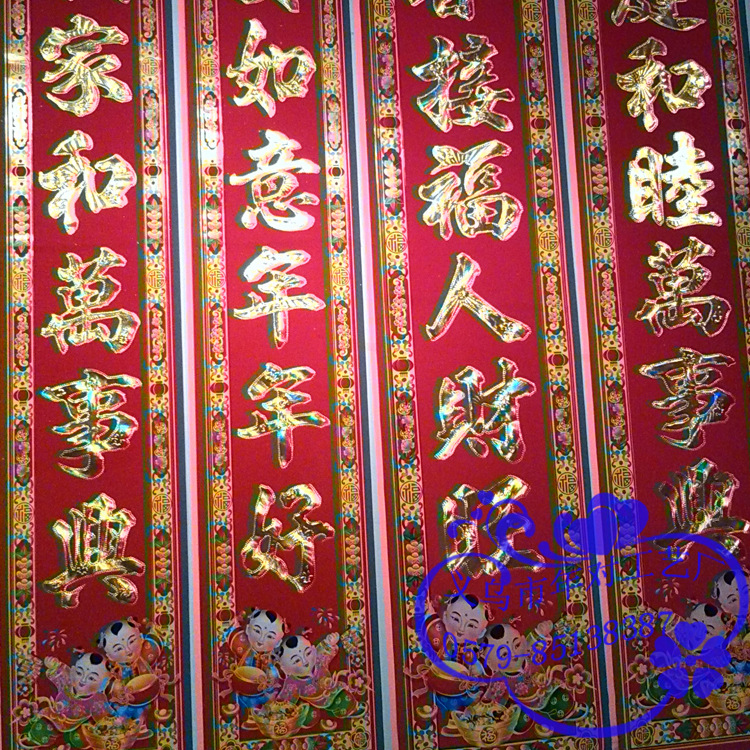 家和萬事興
如意年年好
接福人財旺
和睦萬事興
義乌市年对工艺厂
0579-85138387